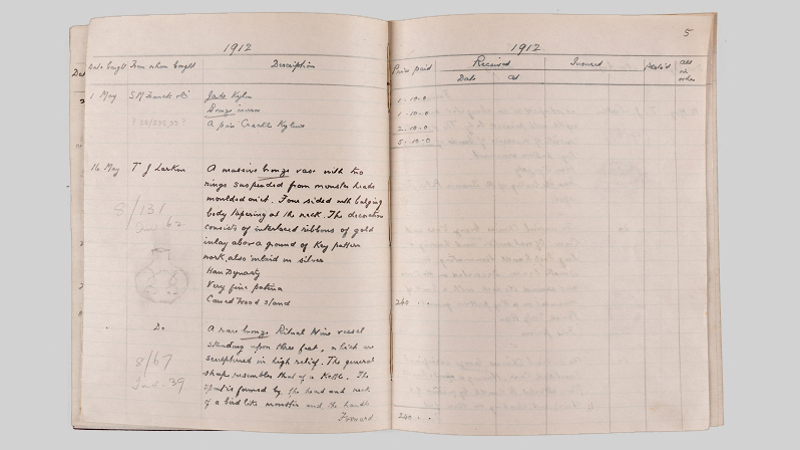 5
1912
1912
Date bought From whom bought Description
Price paid Received Insured
Date At
1 May S M Franck & Co
Jade Kylin
Bronze
A pair Crackle Kylins
1 - 10 - 0
1 - 10 - 0
2 - 10 - 0
5 - 10 - 0
16 May T J Larkin
A massive bronze vase with two
rings suspended from monster heads
moulded on it. Four sided with bulging
body tapering at the neck. The decoration
consists of interlaced ribbons of gold
inlay above a ground of Key pattern
work, also inlaid in silver
Han Dynasty
Very fine patina
Carved Wood stand
240 . .
8/131
62
Do
A rare bronze Ritual Wine vessel
standing upon three feet, which are
sculptured in high relief. The general
shape resembles that of a Kettle. The
spout is formed by the head and neck
of a bird like monster and the handle
Forward
240 . .
8/67
39